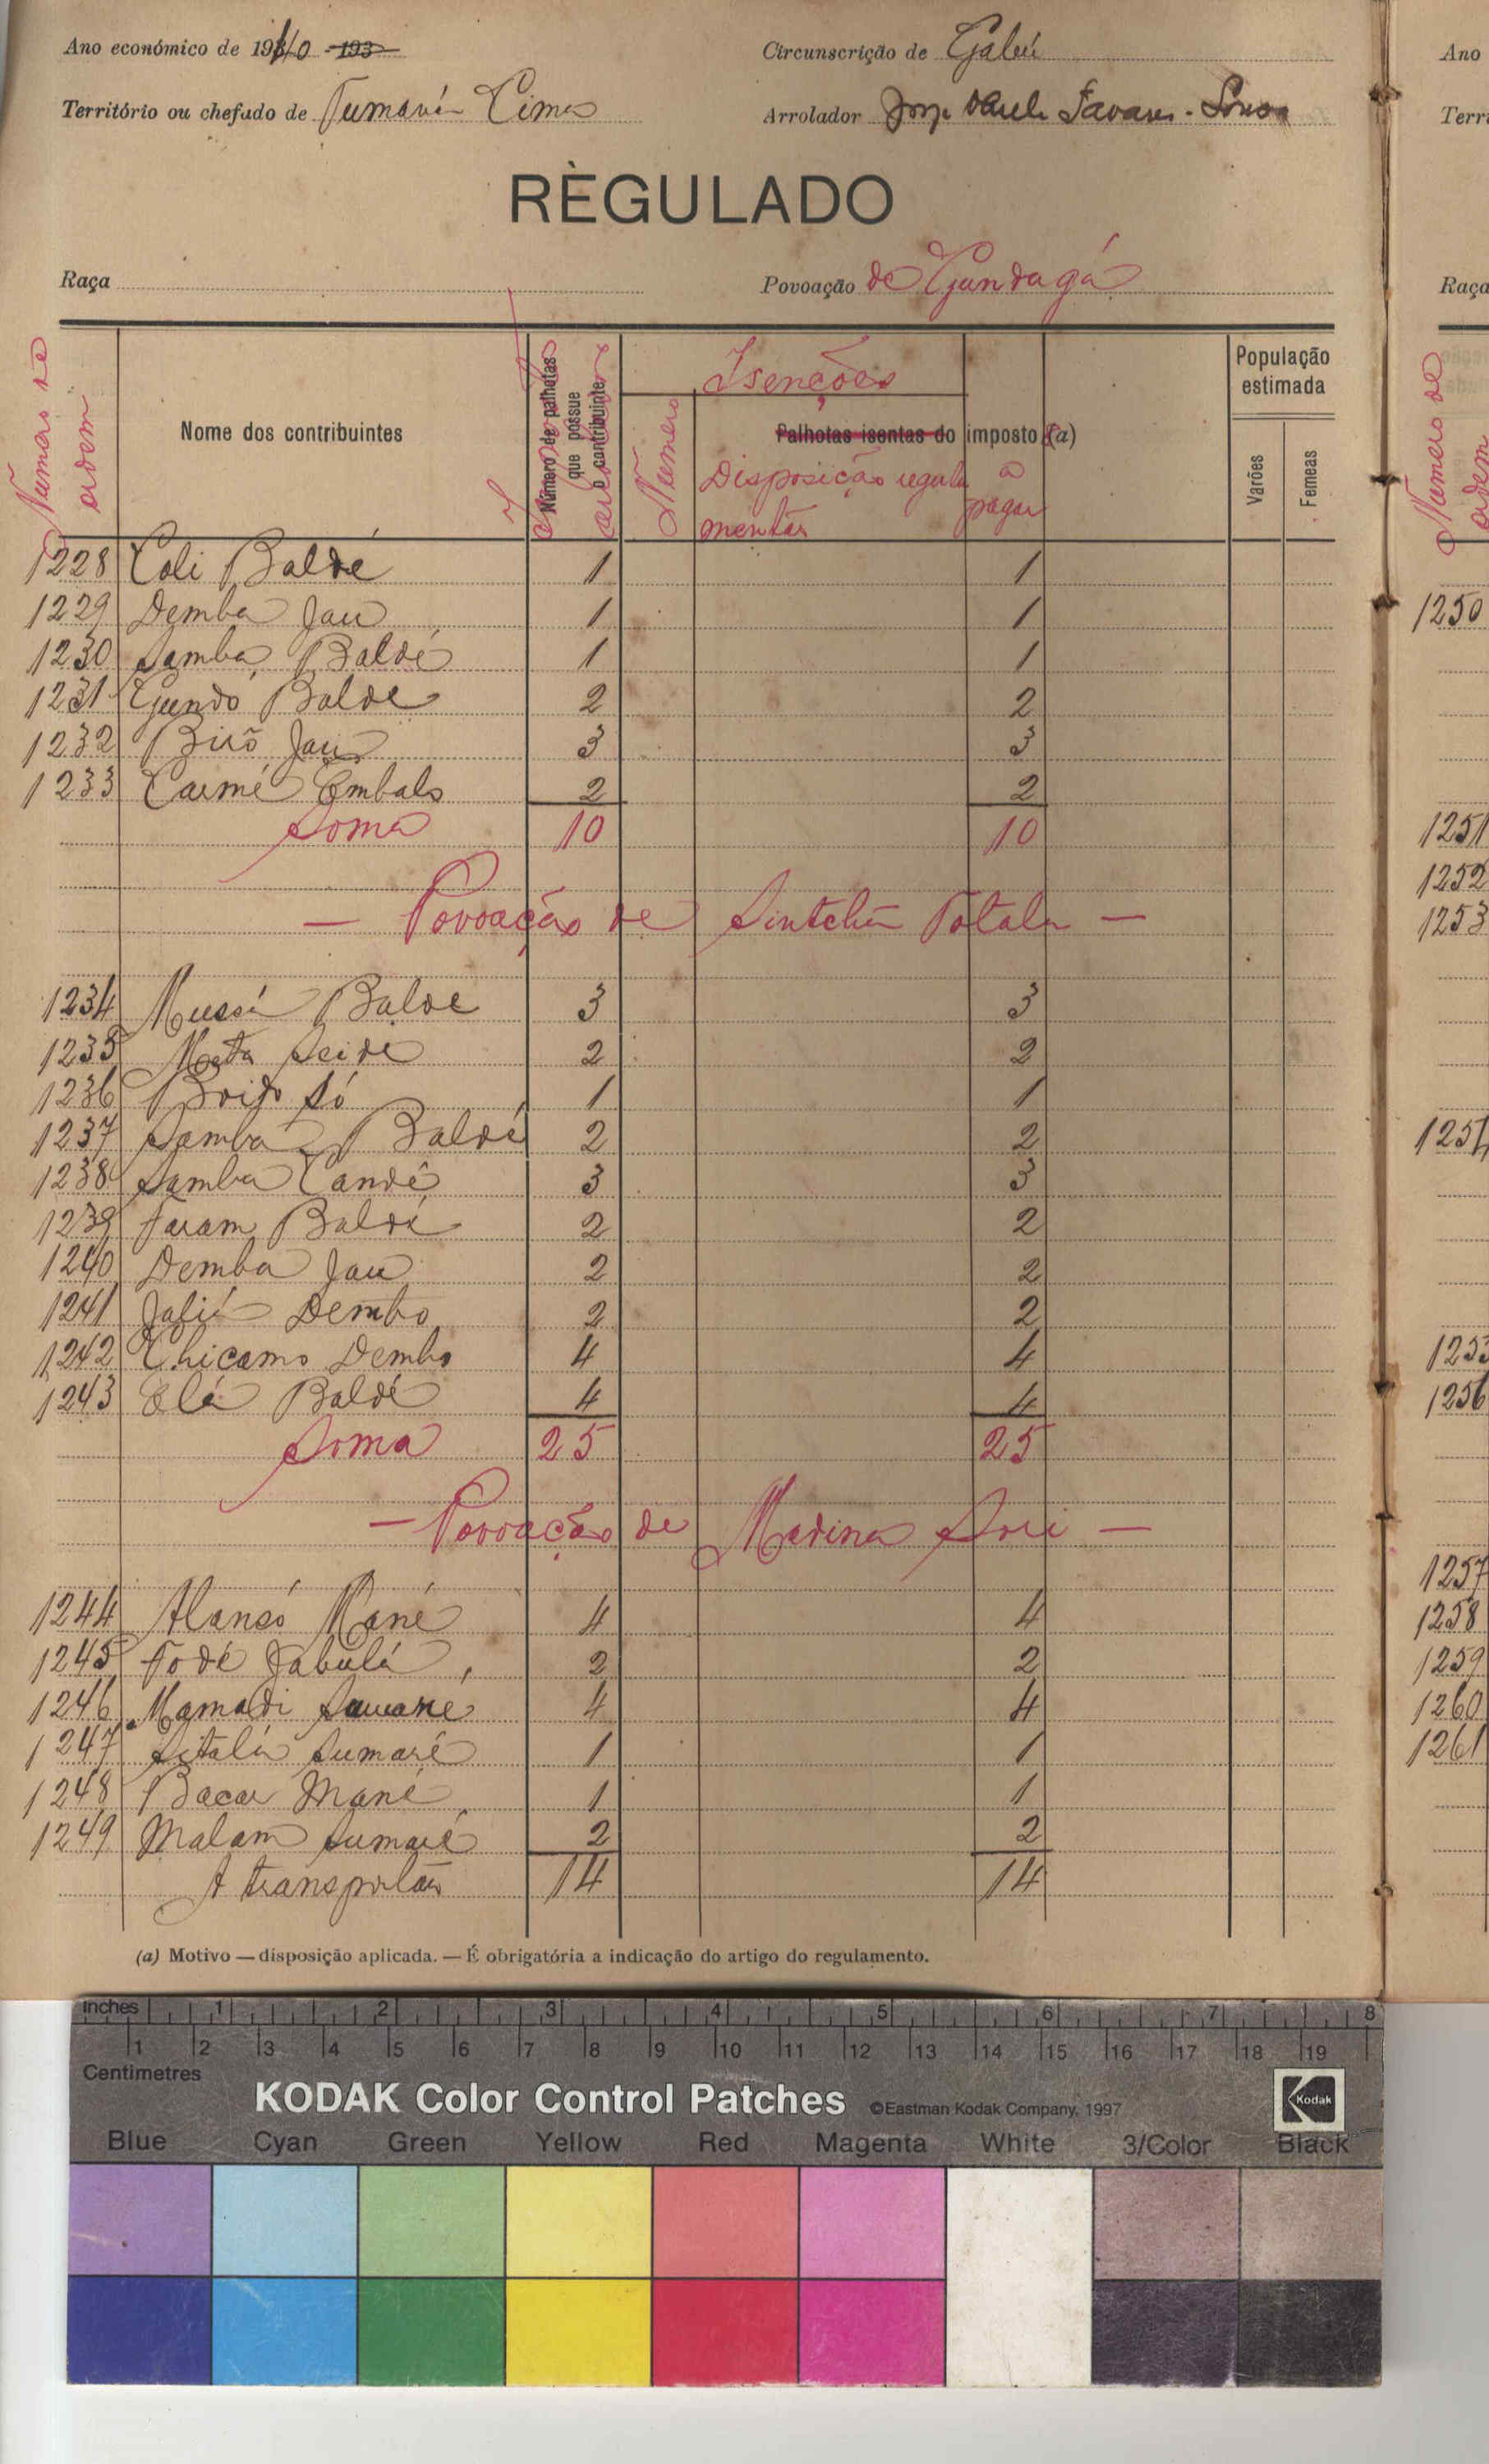 Ano económico de 1940 - 193
Circunscrição de Gabú
Território ou chefado de Tumaná Cima
Arrolador José Tavares - Sousa
RÈGULADO
Raça
Povoação de Gundagá
Numero de ordem
Nome dos contribuintes
Número de palhotas que possue o contribuinte
Isenções
Numero
Palhotas isentas do imposto (a)
Disposição regulamentar
a pagar
População estimada
Varões
Femeas
1228 Coli Baldé 1 1
1229 Demba Jau 1 1
1230 Samba Baldé 1 1
1231 Gundo Balde 2 2
1232 Birô Jau 3 3
1233 Carmé Embalo 2 2
Soma 10 10
— Povoação de Sintchã Totala —
1234 Mussá Balde 3 3
1235 Mata Seide 2 2
1236 Só 1 1
1237 Samba Baldé 2 2
1238 Samba Candé 3 3
1239 Faram Baldé 2 2
1240 Demba Jau 2 2
1241 Dembo 2 2
1242 Chicamo Dembo 4 4
1243 Elá Baldé 4 4
Soma 25 25
— Povoação de Madina Sori —
1244 Alansó Mané 4 4
1245 Fodé Jabulá 2 2
1246 Mamadi Sumané 4 4
1247 Sitafá Sumaré 1 1
1248 Bacar Mané 1 1
1249 Malam Sumaré 2 2
A transportar 14 14
(a) Motivo — disposição aplicada. — É obrigatória a indicação do artigo do regulamento.
Ano
Terri
Raça
Numero de ordem
1250
1251
1252
1253
1254
1255
1256
1257
1258
1259
1260
1261
inches 1 2 3 4 5 6 7 8
1 2 3 4 5 6 7 8 9 10 11 12 13 14 15 16 17 18 19
Centimetres
KODAK Color Control Patches ©Eastman Kodak Company, 1997 Kodak
Blue Cyan Green Yellow Red Magenta White 3/Color Black